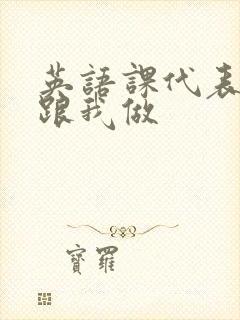 英語課代表
跟我做
寶羅